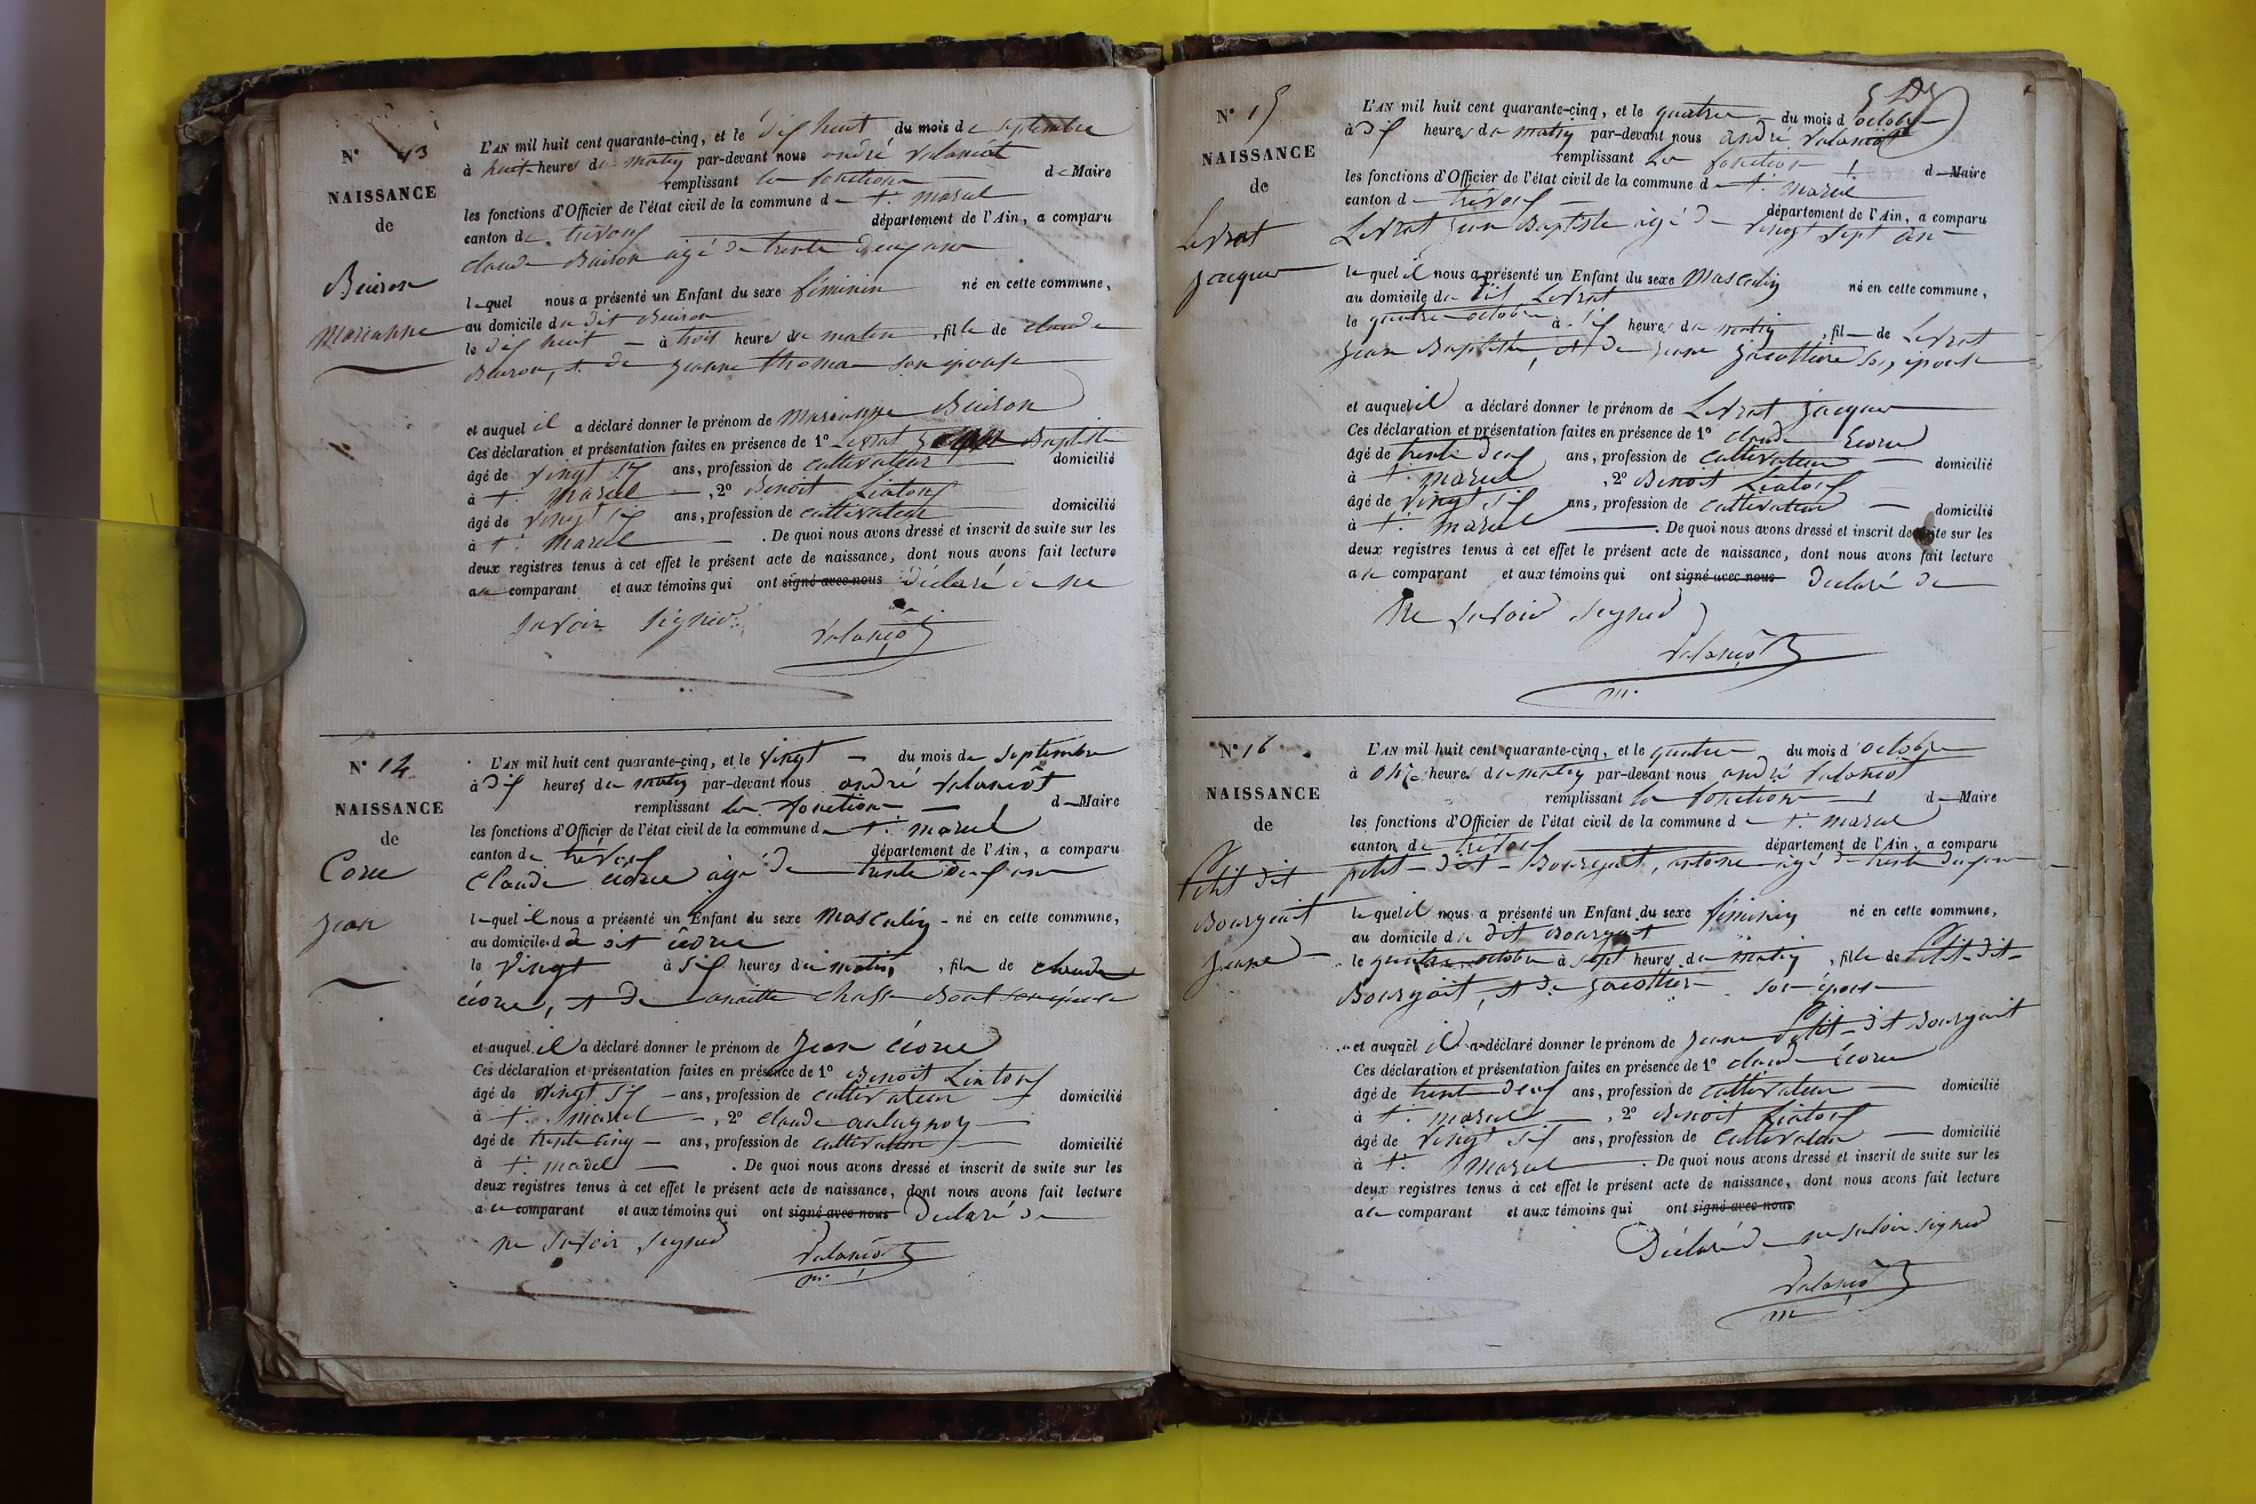 N° 13
NAISSANCE
de
Buiron
Marianne
L'AN mil huit cent quarante-cinq, et le dix huit du mois de septembre
à huit heures du matin par-devant nous andré valansiot
remplissant les fonctions de Maire
les fonctions d'Officier de l'état civil de la commune de St. marcel
canton de trévoux département de l'Ain, a comparu
claude Buiron agé de trente deux ans
lequel nous a présenté un Enfant du sexe féminin né en cette commune,
au domicile du dit Buiron
le dix huit à trois heures du matin, fille de claude
Buiron, et de jeanne thomas son épouse
et auquel il a déclaré donner le prénom de Marianne Buiron
Ces déclaration et présentation faites en présence de 1° Levrat Baptiste
âgé de vingt ans, profession de cultivateur domicilié
à St. marcel, 2° Benoit Liatoux
âgé de vingt six ans, profession de cultivateur domicilié
à St. marcel. De quoi nous avons dressé et inscrit de suite sur les
deux registres tenus à cet effet le présent acte de naissance, dont nous avons fait lecture
au comparant et aux témoins qui ont signé avec nous déclaré de ne
savoir signer.
N° 14
NAISSANCE
de
Corne
jean
L'AN mil huit cent quarante-cinq, et le vingt du mois de septembre
à dix heures du matin par-devant nous andré valansiot
remplissant les fonctions de Maire
les fonctions d'Officier de l'état civil de la commune de St. marcel
canton de trévoux département de l'Ain, a comparu
claude agé de trente deux ans
lequel il nous a présenté un Enfant du sexe Masculin né en cette commune,
au domicile du dit
le vingt à six heures du matin, fils de claude
et de son épouse
et auquel il a déclaré donner le prénom de jean
Ces déclaration et présentation faites en présence de 1° Benoit Liatoux
âgé de vingt six ans, profession de cultivateur domicilié
à St. marcel, 2° claude
âgé de trente cinq ans, profession de cultivateur domicilié
à St. marcel. De quoi nous avons dressé et inscrit de suite sur les
deux registres tenus à cet effet le présent acte de naissance, dont nous avons fait lecture
au comparant et aux témoins qui ont signé avec nous Déclaré de
ne savoir signer
N° 15
NAISSANCE
de
Levrat
jacques
L'AN mil huit cent quarante-cinq, et le quatre du mois d'octobre
à dix heures du matin par-devant nous andré valansiot
remplissant les fonctions de Maire
les fonctions d'Officier de l'état civil de la commune de St. marcel
canton de trévoux département de l'Ain, a comparu
Levrat jean Baptiste agé de vingt sept ans
lequel il nous a présenté un Enfant du sexe Masculin né en cette commune,
au domicile du dit Levrat
le quatre octobre à six heures du matin, fils de Levrat
jean Baptiste, et de jeanne son épouse
et auquel il a déclaré donner le prénom de Levrat jacques
Ces déclaration et présentation faites en présence de 1° claude
âgé de trente deux ans, profession de cultivateur domicilié
à St. marcel, 2° Benoit Liatoux
âgé de vingt six ans, profession de cultivateur domicilié
à St. marcel. De quoi nous avons dressé et inscrit de suite sur les
deux registres tenus à cet effet le présent acte de naissance, dont nous avons fait lecture
au comparant et aux témoins qui ont signé avec nous Declaré de
ne savoir signer
N° 16
NAISSANCE
de
Petit dit
Bourgoit
jeanne
L'AN mil huit cent quarante-cinq, et le quatre du mois d'octobre
à onze heures du matin par-devant nous andré valansiot
remplissant les fonctions de Maire
les fonctions d'Officier de l'état civil de la commune de St. marcel
canton de trévoux département de l'Ain, a comparu
petit-dit-Bourgoit, antoine agé de trente deux ans
lequel il nous a présenté un Enfant du sexe féminin né en cette commune,
au domicile du dit Bourgoit
le quatre octobre à sept heures du matin, fille de Petit-dit-
Bourgoit, et de son épouse
et auquel il a déclaré donner le prénom de jeanne Petit-dit Bourgoit
Ces déclaration et présentation faites en présence de 1° claude
âgé de trente deux ans, profession de cultivateur domicilié
à St. marcel, 2° Benoit Liatoux
âgé de vingt six ans, profession de cultivateur domicilié
à St. marcel. De quoi nous avons dressé et inscrit de suite sur les
deux registres tenus à cet effet le présent acte de naissance, dont nous avons fait lecture
au comparant et aux témoins qui ont signé avec nous
Déclaré de ne savoir signer